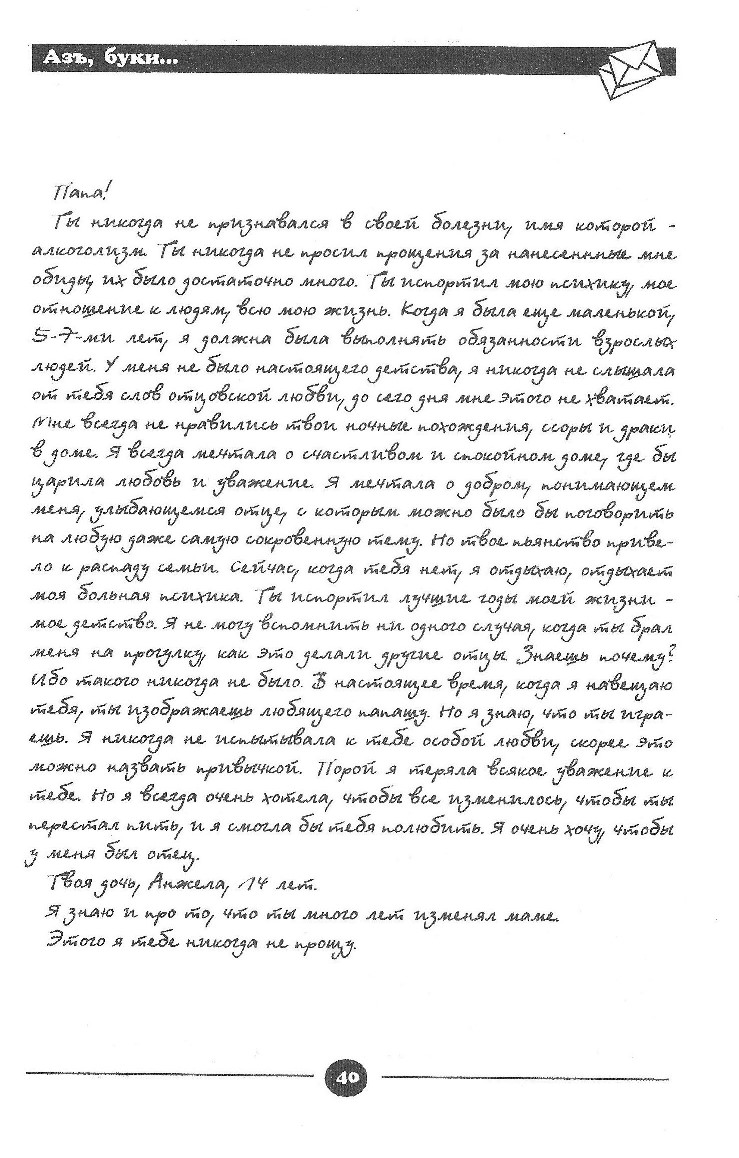 Азъ, буки...
Папа!
Ты никогда не признавался в своей болезни, имя которой -
алкоголизм. Ты никогда не просил прощения за нанесеннные мне
обиды, их было достаточно много. Ты испортил мою психику, мое
отношение к людям, всю мою жизнь. Когда я была еще маленькой,
5-7-ми лет, я должна была выполнять обязанности взрослых
людей. У меня не было настоящего детства, я никогда не слышала
от тебя слов отцовской любви, до сего дня мне этого не хватает.
Мне всегда не нравились твои ночные похождения, ссоры и драки
в доме. Я всегда мечтала о счастливом и спокойном доме, где бы
царила любовь и уважение. Я мечтала о добром, понимающем
меня, улыбающемся отце, с которым можно было бы поговорить
на любую даже самую сокровенную тему. Но твое пьянство приве-
ло к распаду семьи. Сейчас, когда тебя нет, я отдыхаю, отдыхает
моя больная психика. Ты испортил лучшие годы моей жизни -
мое детство. Я не могу вспомнить ни одного случая, когда ты брал
меня на прогулку, как это делали другие отцы. Знаешь почему?
Ибо такого никогда не было. В настоящее время, когда я навещаю
тебя, ты изображаешь любящего папашу. Но я знаю, что ты игра-
ешь. Я никогда не испытывала к тебе особой любви, скорее это
можно назвать привычкой. Порой я теряла всякое уважение к
тебе. Но я всегда очень хотела, чтобы все изменилось, чтобы ты
перестал пить, и я смогла бы тебя полюбить. Я очень хочу, чтобы
у меня был отец.
Твоя дочь, Анжела, 14 лет.
Я знаю и про то, что ты много лет изменял маме.
Этого я тебе никогда не прощу.
40